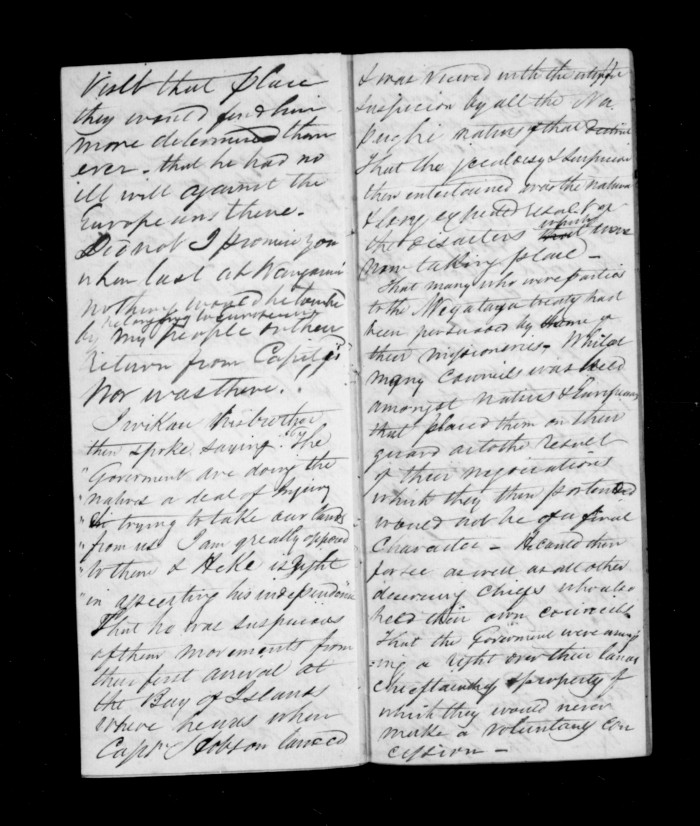 Visit that place
they would find him
more determined than
ever. that he had no
ill will against the
Europeans there.
Did not I promise you
when last at Wanganui
nothing would be touched
belonging to Europeans
by my People on their
return from Capiti
Nor was there.
Iwikau his brother
then spoke saying. "The
"Goverment are doing the
"natives a deal of Injury
"in trying to take our lands
"from us I am greatly opposed
"to them & Heke is right
"in asserting his independence
That he was suspicious
of them movements from
their first arrival at
the Bay of Islands
where he was when
Captn Hobson landed
& was viewed with the
suspicion by all the Na
pughi natives & that
That the jealousy & suspicion
then entertained over the natives
& long expected result of
the disasters which were
now taking place -
That many who were parties
to the treaty had
been persuaded by some of
their missionaries. Whilst
many Councils was held
amongst Natives & Europeans
that placed them on their
guard as to the Result
of their negociations
which they then portended
would not be of a final
Character - He could then
forsee as well as all other
discerning Chiefs who also
held their own councils
That the Goverment were assum
ing a right over their lands
Chieftainship & property of
which they would never
make a voluntary con
cession -